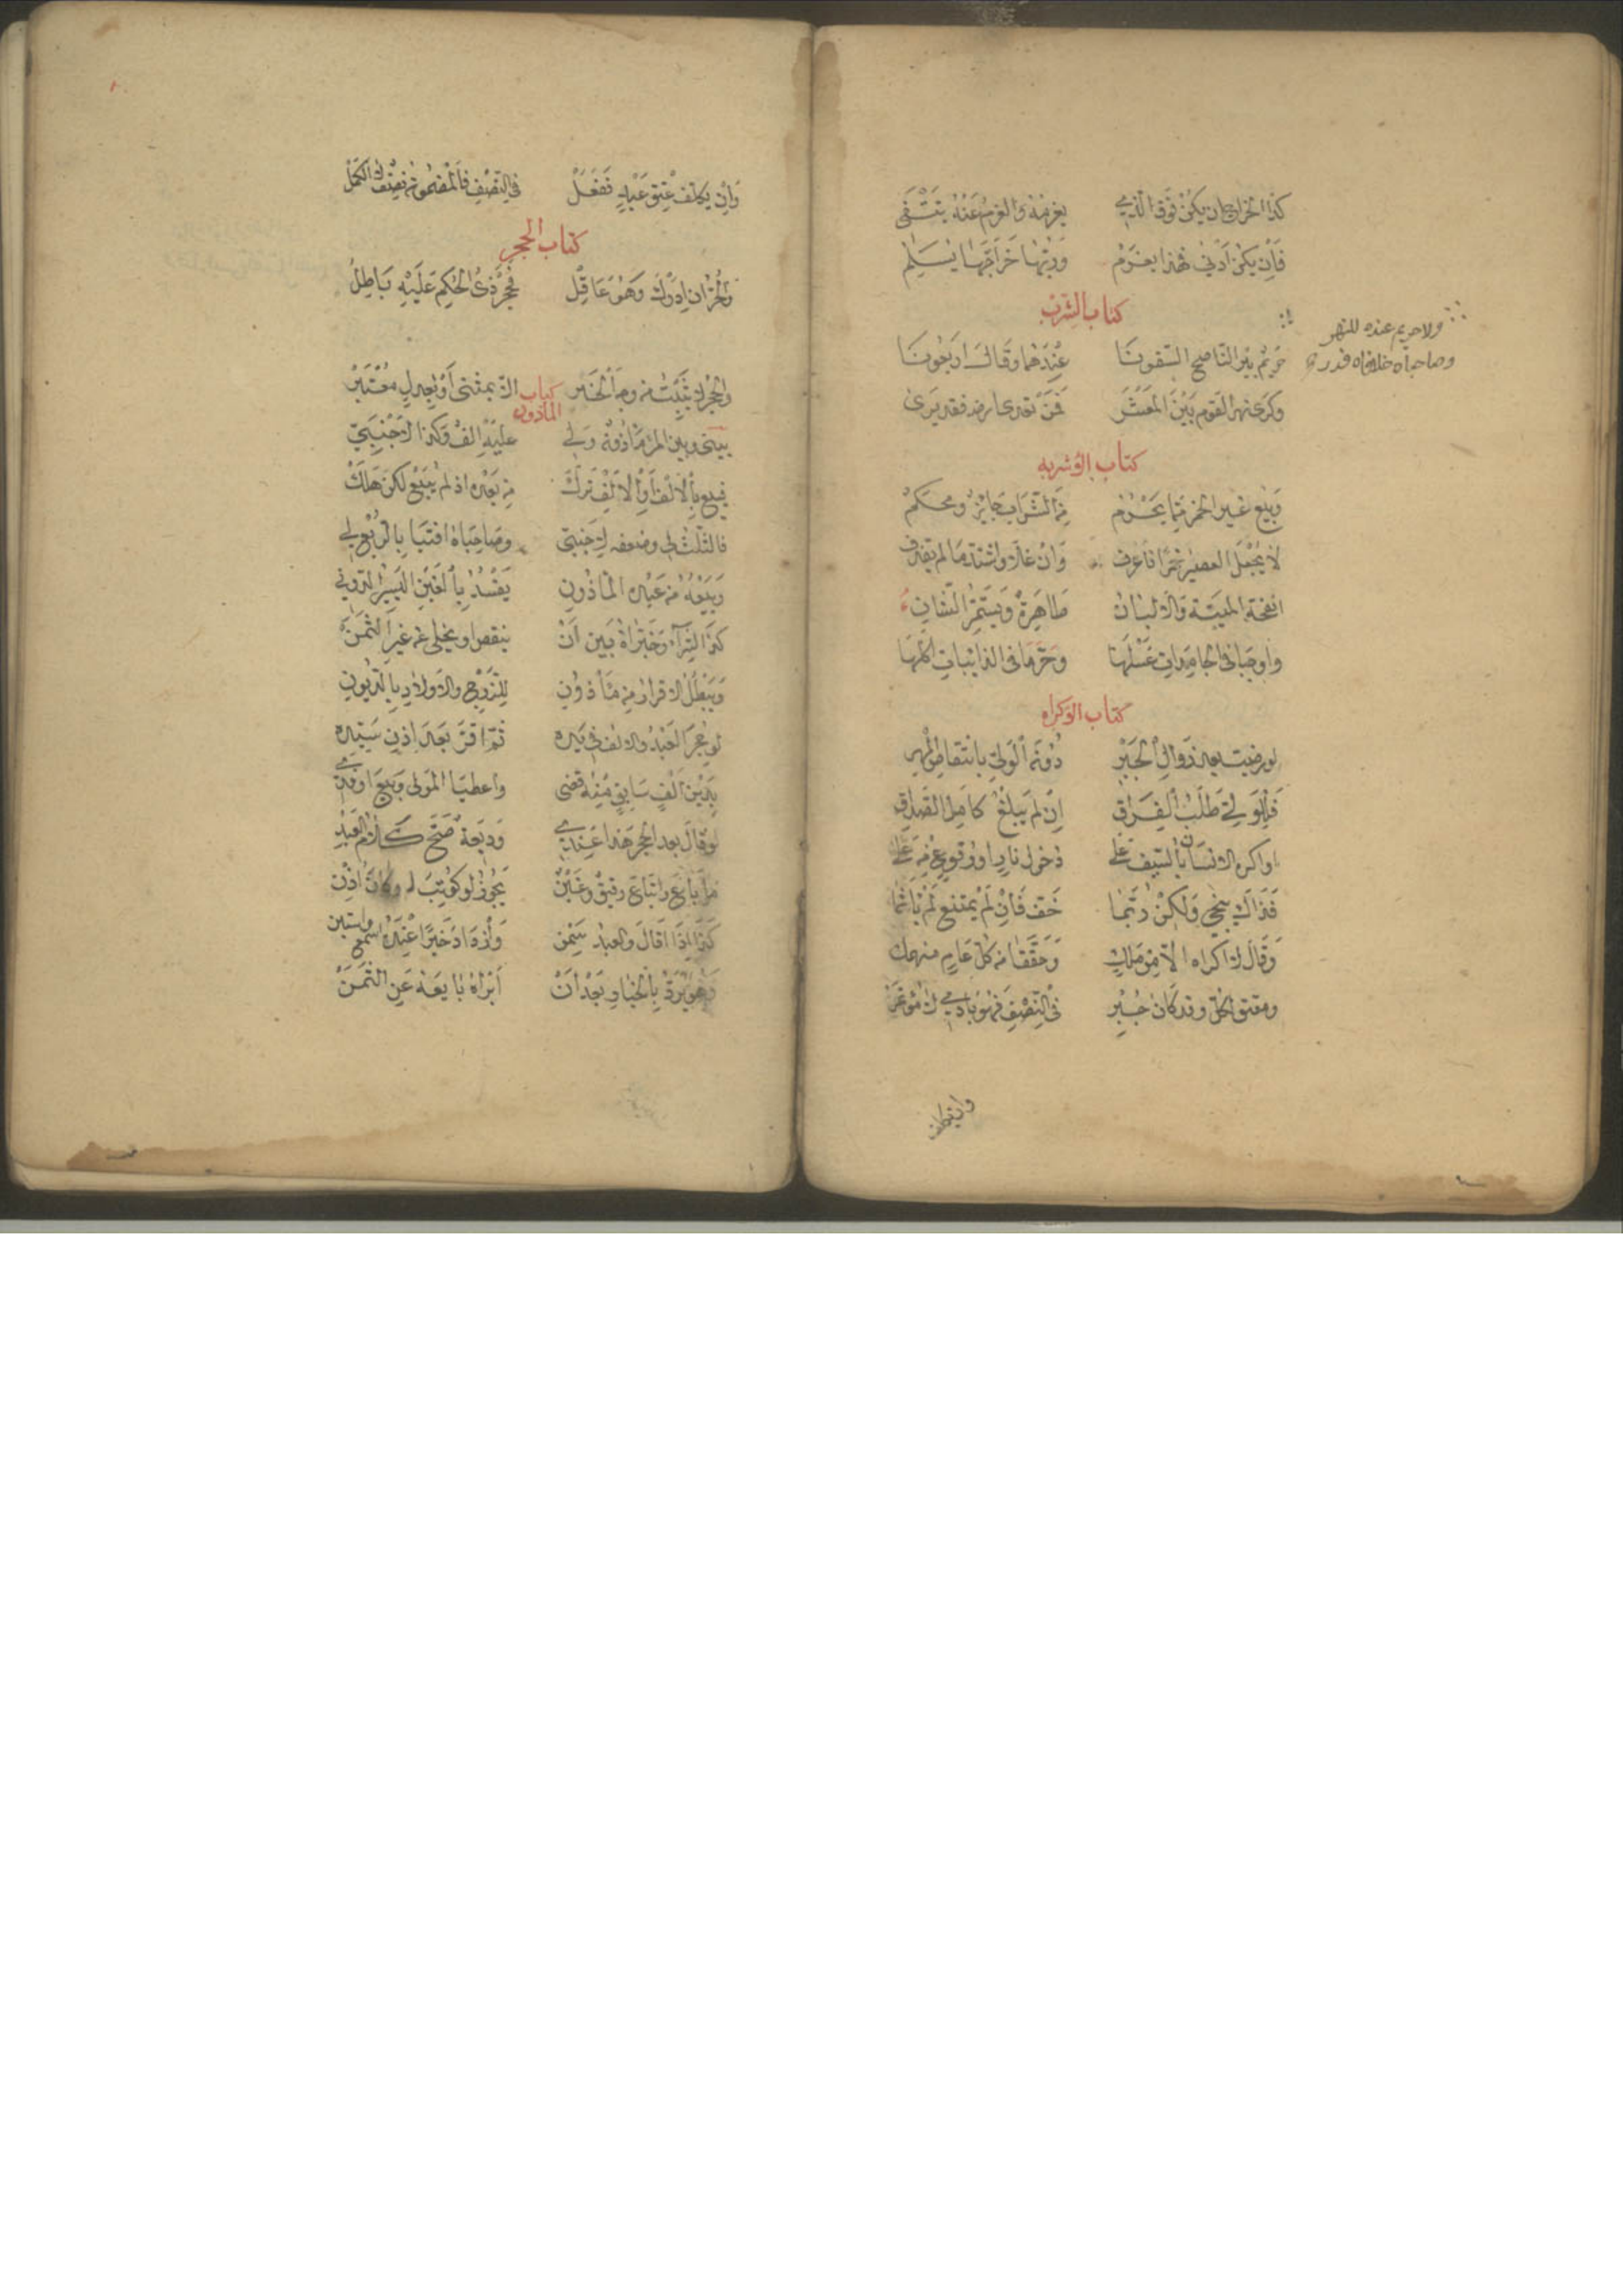 كذا الخراج ان يكن فوق الذمي يغرمه والغرم عنه ينتفى
فان يكن ادنى فهذا يغرم وربها خراجها يسلم
كتاب الشرب
حريم بئر الناضح الستونا عندهما وقال اربعونا
ولا حريم عنده للنهر
وصاحباه خالفاه
وكرى نهر القوم بين المعشر فمن تعدى ارضه فقد برى
كتاب الاشربه
وبيع غير الخمر مما يحرم من الشراب جايز ومحكم
لا يجعل العصير خمرا فاعرف وان غلا واشتد ما لم يقذف
انفحة الميتة والالبان طاهرة ويستمر الشان
واوجبا في الجامدات غسلها وحرما في الذائبات اكلها
كتاب الاكراه
لو رضيت بعد زوال الجبر دون الولي بانتقاص المهر
فللولي طلب الفراق ان لم يبلغ كامل الصداق
او اكره الانسان بالسيف على دخول نار او وقوع من على
فذاك ينجي ولكن ربما خف فان لم يمتنع لم ياثما
وقال لا اكراه الا من ملك وحققا من كل عاد منهمك
ومعتق الكل وقد كان جبر في النصف فهو بادي لا مؤتمر
وان يكلف
وان يكلف عتق عبد ففعل في النصف فالمضمون نصف لا الكمل
كتاب الحجر
والحر ان ادرك وهو عاقل فحجر ذي الحكم عليه باطل
كتاب الماذون
والحجر لا يثبت من وجه الخبر الا بمثنى او بعدل معتبر
بيني وبين المرء ماذونه ولي عليه الف وكذا لاجنبي
فبيع بالالف او الالف ترك من بعده اذ لم يبع لكن هلك
فالثلث لي وضعفه لاجنبي وصاحباه افتيا بالربع لي
وبيعه من عبده الماذون يفسد بالغبن اليسير الدون
كذا الشراء وخيراه بين ان ينقص او يخلى عن غير الثمن
ويبطل الاقرار من ماذون للزوج والاولاد بالديون
لو حجر العبد والالف في يده ثم اقر بعد اذن سيده
بدين الف سابق منه قضى واعطيا المولى وبيع او فدي
لو قال بعد الحجر هذا عندي وديعة صح كلام العبد
ما باع وابتاع رقيق وغبن يجوز لو كوتب او كان اذن
كذا اذا اقال والعبد سمن وازداد خيرا عنده اسمع واستبن
وهو يرد بالخيار بعد ان ابراه بايعه عن الثمن